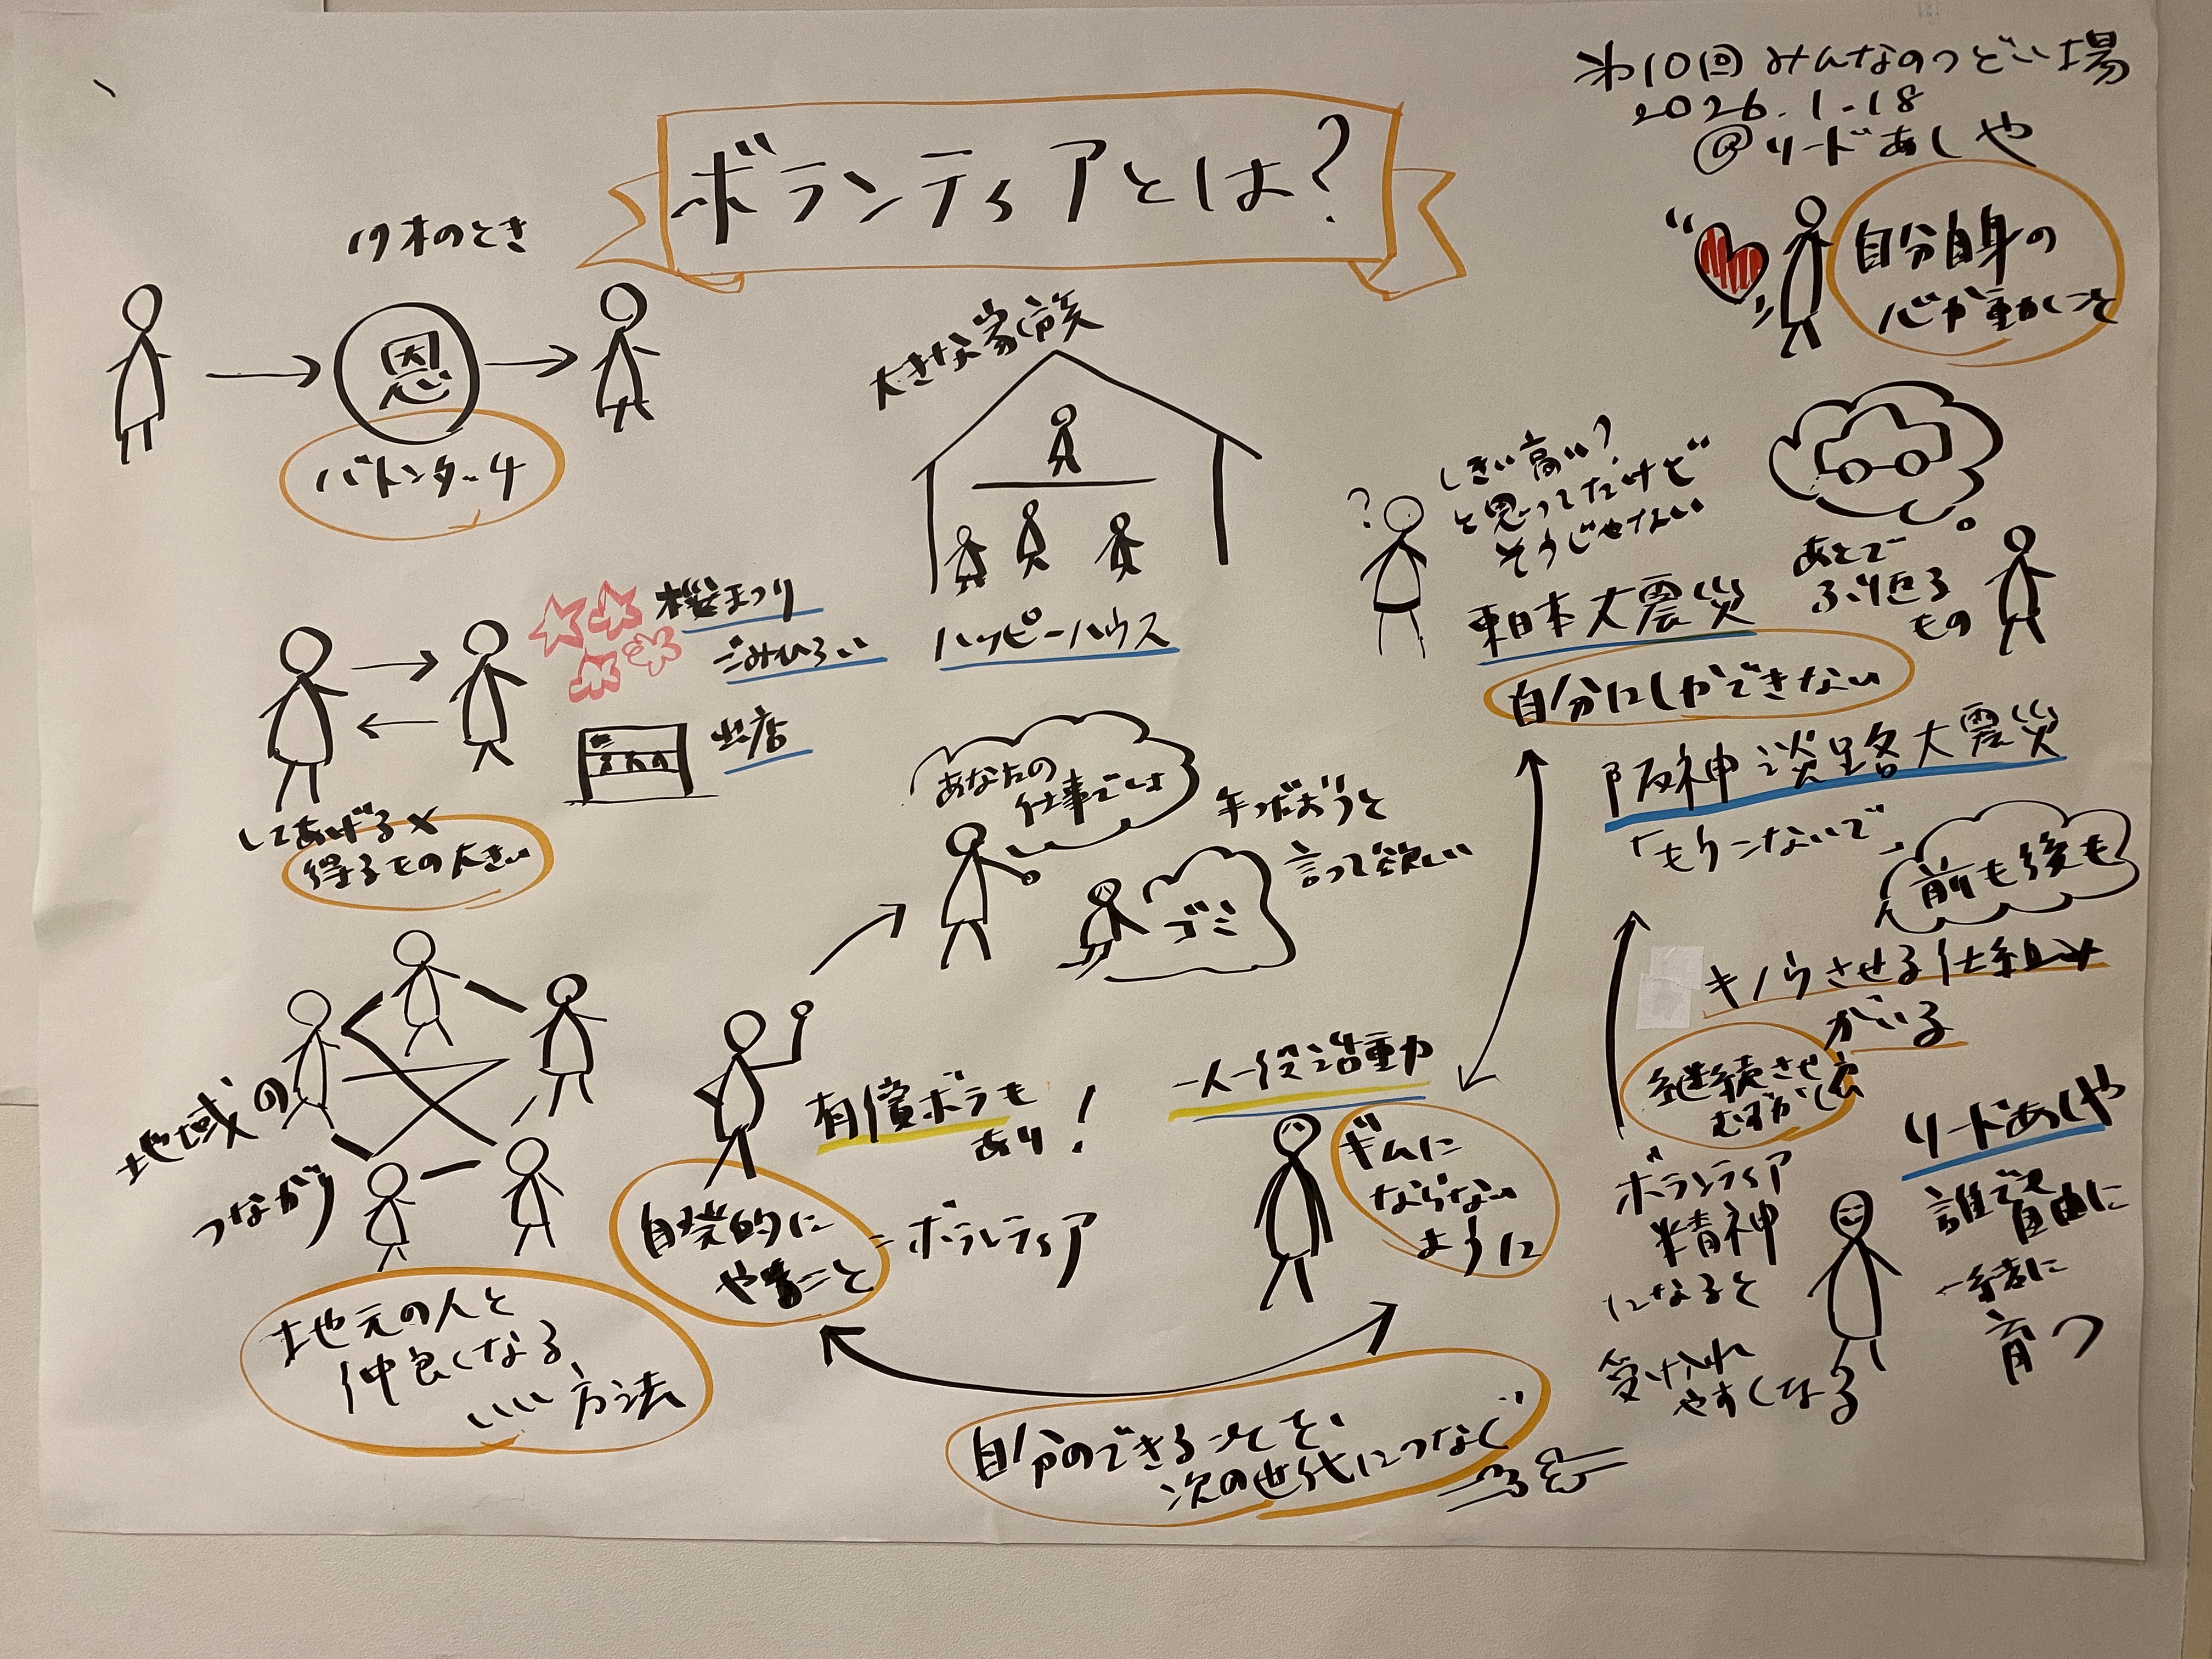 ボランティアとは?
第10回 みんなのつどい場
2026.1.18
@リードあしや
自分自身の
心が動くこと
17才のとき
恩
バトンタッチ
大きな家族
ハッピーハウス
桜まつり
ごみひろい
出店
してあげる×
得るもの大きい
しきい高い?
と思ってたけど
そうじゃない
あとで
ふり返る
もの
東日本大震災
自分にしかできない
阪神淡路大震災
「もうこないで」
前も後も
キノウさせる仕組み
がいる
継続させ方
むずかしい
ボランティア
精神
になると
受け入れ
やすくなる
リードあしや
誰でも
自由に
一緒に
育つ
あなたの
仕事では
手つだおうと
言って欲しい
ゴミ
地域の
つながり
地元の人と
仲良くなる
いい方法
有償ボラも
あり!
自発的に
やること
=ボランティア
一人一役活動
ギムに
ならない
ように
自分のできることを、
次の世代につなぐ